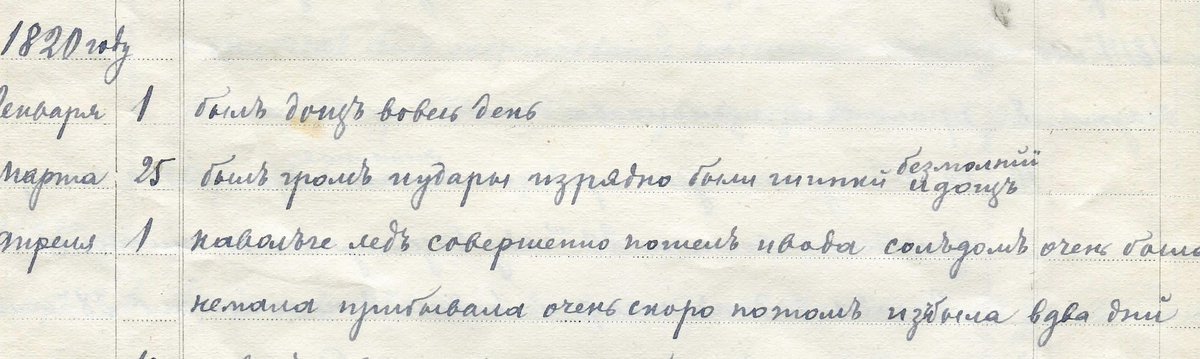 1820 году
Генваря 1 былъ дощъ вовесь день
безмолний
марта 25 былъ громъ иудары изрядно были шипки идощъ
апреля 1 наволъге ледъ совершенно пошелъ ивода сольдомъ очень была
немала прибывала очень скоро потомъ изъбыла вдва дни